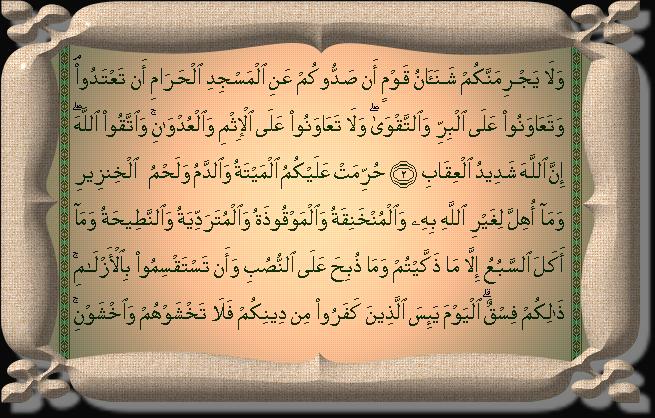 وَلَا يَجْرِمَنَّكُمْ شَنَـَٔانُ قَوْمٍ أَن صَدُّوكُمْ عَنِ ٱلْمَسْجِدِ ٱلْحَرَامِ أَن تَعْتَدُوا۟ۘ
وَتَعَاوَنُوا۟ عَلَى ٱلْبِرِّ وَٱلتَّقْوَىٰۖ وَلَا تَعَاوَنُوا۟ عَلَى ٱلْإِثْمِ وَٱلْعُدْوَٰنِۚ وَٱتَّقُوا۟ ٱللَّهَۖ
إِنَّ ٱللَّهَ شَدِيدُ ٱلْعِقَابِ ٢ حُرِّمَتْ عَلَيْكُمُ ٱلْمَيْتَةُ وَٱلدَّمُ وَلَحْمُ ٱلْخِنزِيرِ
وَمَآ أُهِلَّ لِغَيْرِ ٱللَّهِ بِهِۦ وَٱلْمُنْخَنِقَةُ وَٱلْمَوْقُوذَةُ وَٱلْمُتَرَدِّيَةُ وَٱلنَّطِيحَةُ وَمَآ
أَكَلَ ٱلسَّبُعُ إِلَّا مَا ذَكَّيْتُمْ وَمَا ذُبِحَ عَلَى ٱلنُّصُبِ وَأَن تَسْتَقْسِمُوا۟ بِٱلْأَزْلَـٰمِۚ
ذَٰلِكُمْ فِسْقٌۗ ٱلْيَوْمَ يَئِسَ ٱلَّذِينَ كَفَرُوا۟ مِن دِينِكُمْ فَلَا تَخْشَوْهُمْ وَٱخْشَوْنِۚ